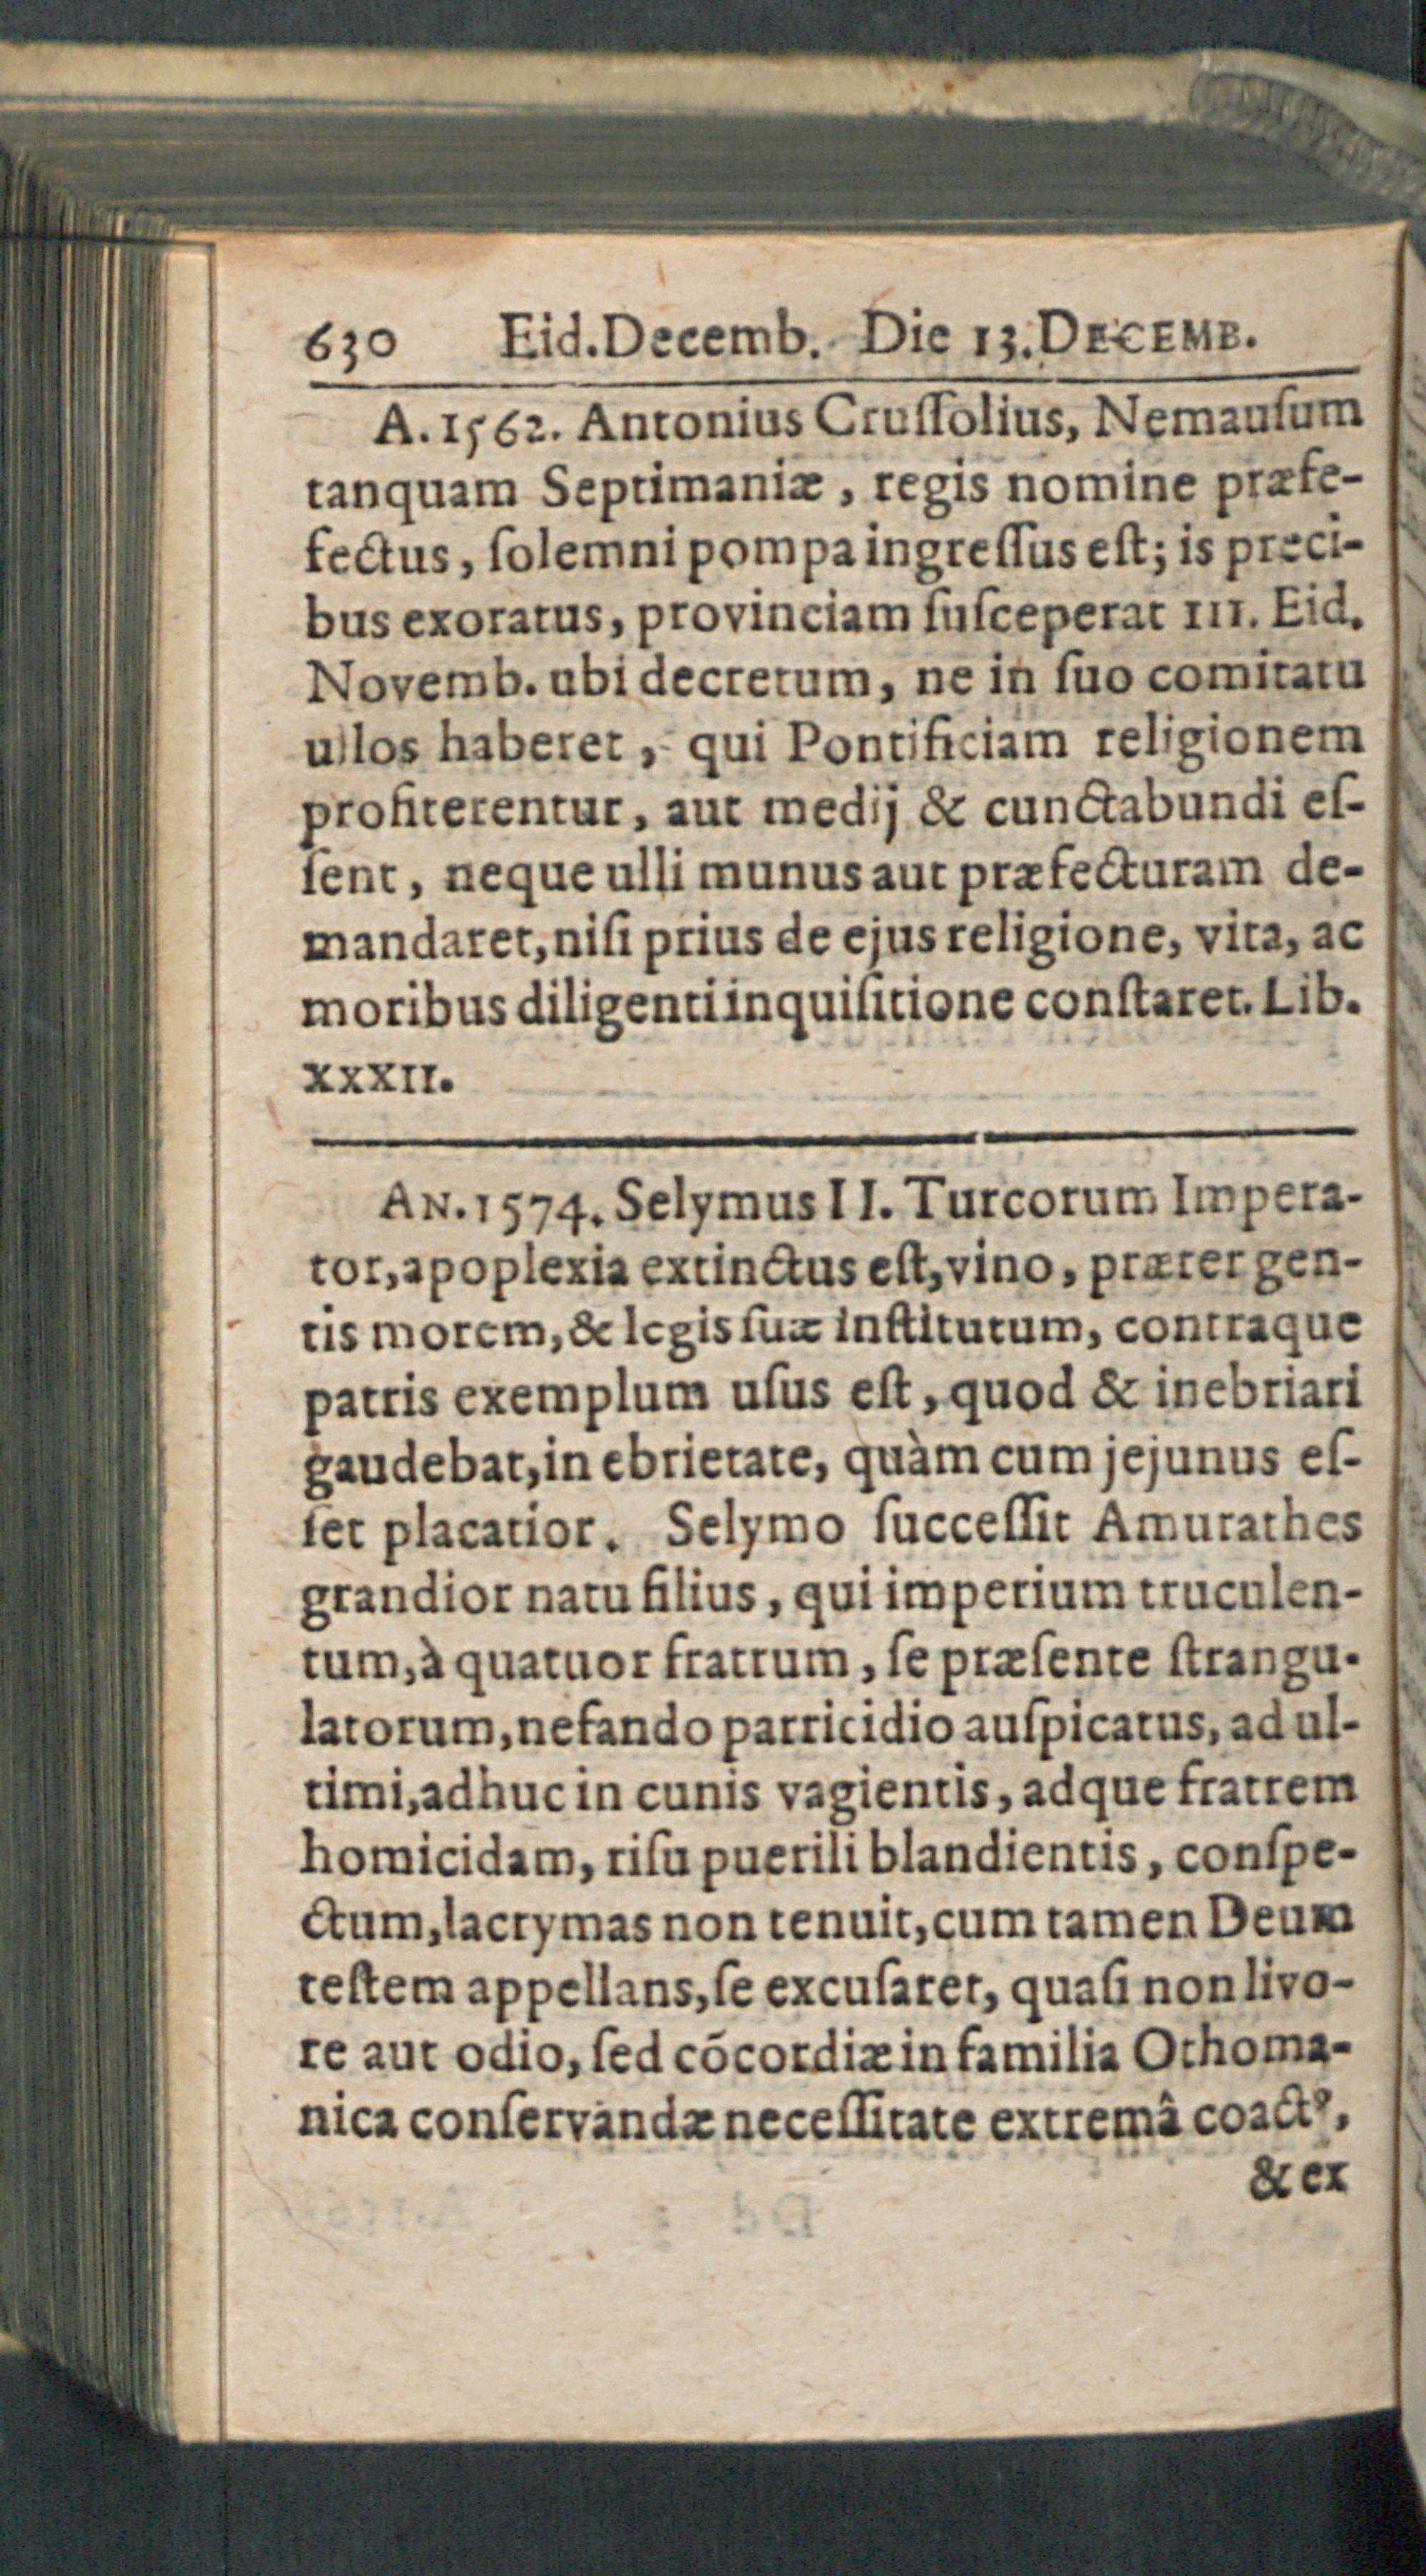 630 Eid.Decemb. Die 13.DECEMB.
A. 1562. Antonius Cruſſolius, Nemauſum
tanquam Septimaniæ, regis nomine præfe-
fectus, ſolemni pompa ingreſſus eſt; is preci-
bus exoratus, provinciam ſuſceperat III. Eid.
Novemb. ubi decretum, ne in ſuo comitatu
ullos haberet, qui Pontificiam religionem
profiterentur, aut medij & cunctabundi eſ-
ſent, neque ulli munus aut præfecturam de-
mandaret, niſi prius de ejus religione, vita, ac
moribus diligenti inquiſitione conſtaret. Lib.
XXXII.
AN. 1574. Selymus II. Turcorum Impera-
tor, apoplexia extinctus eſt, vino, præter gen-
tis morem, & legis ſuæ inſtitutum, contraque
patris exemplum uſus eſt, quod & inebriari
gaudebat, in ebrietate, quàm cum jejunus eſ-
ſet placatior. Selymo ſucceſſit Amurathes
grandior natu filius, qui imperium truculen-
tum, à quatuor fratrum, ſe præſente ſtrangu-
latorum, nefando parricidio auſpicatus, ad ul-
timi, adhuc in cunis vagientis, adque fratrem
homicidam, riſu puerili blandientis, conſpe-
ctum, lacrymas non tenuit, cum tamen Deum
teſtem appellans, ſe excuſaret, quaſi non livo-
re aut odio, ſed cōcordiæ in familia Othoma-
nica conſervandæ neceſſitate extremâ coactꝰ,
& ex